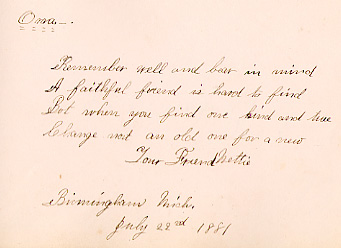 Ona.
Remember well and bear in mind
A faithful friend is hard to find
But when you find one kind and true
Change not an old one for a new
Your Friend Nettie
Birmingham Mich.
July 22nd 1881